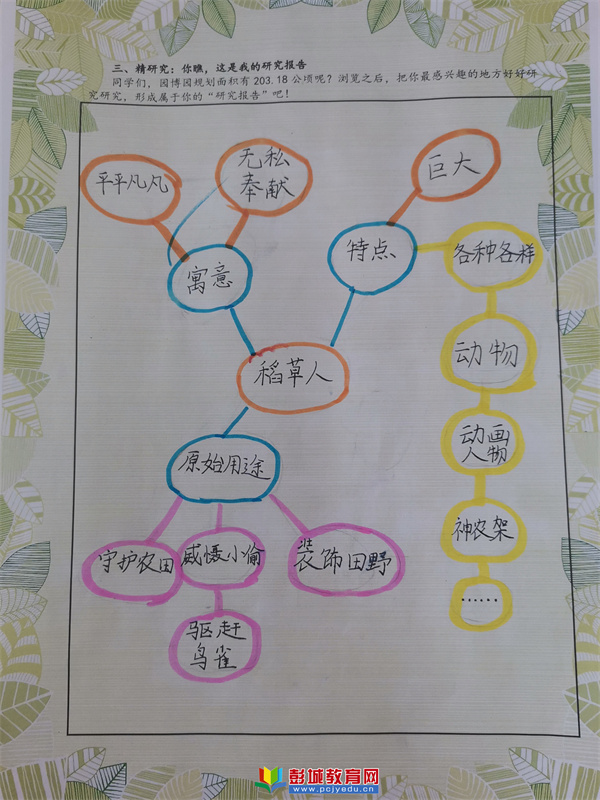 三、精研究：你瞧，这是我的研究报告
同学们，园博园规划面积有203.18公顷呢？浏览之后，把你最感兴趣的地方好好研
究研究，形成属于你的“研究报告”吧！
平平凡凡
无私
奉献
巨大
寓意
特点
各种各样
稻草人
动物
动画
人物
原始用途
神农架
守护农田
威慑小偷
装饰田野
......
驱赶
鸟雀
彭城教育网
www.pcjyedu.cn